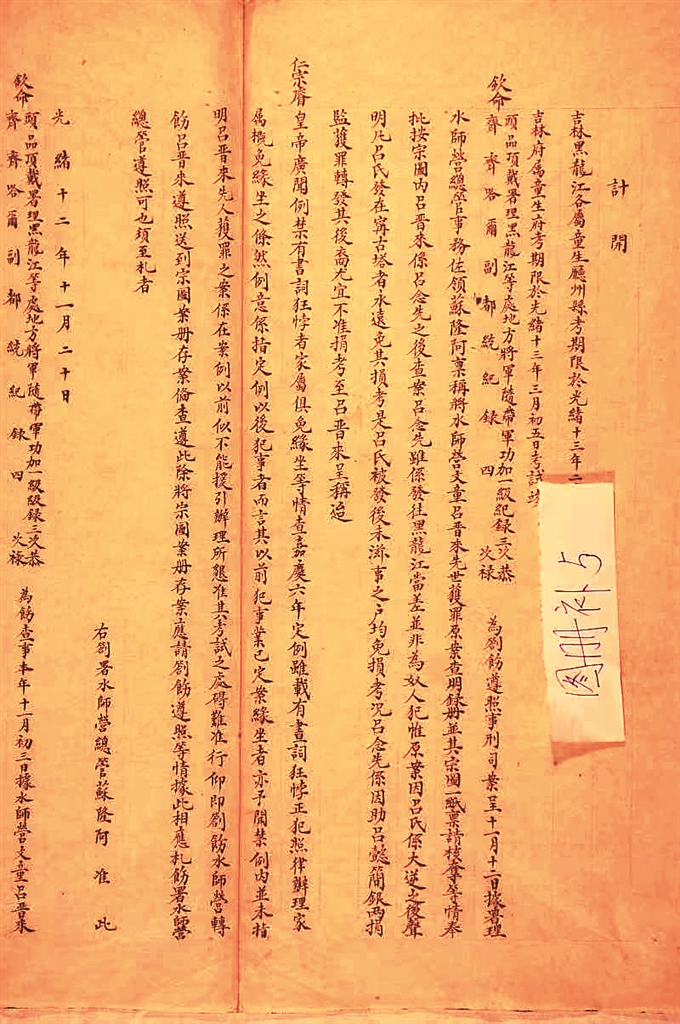 計開
吉林黑龍江各屬童生廳州縣考期限於光緒十三年二
吉林府屬童生府考期限於光緒十三年三月初五日考試
欽命頭品頂戴署理黑龍江等處地方將軍隨帶軍功加一級紀錄三次恭
齊齊哈爾副都統紀錄四次祿
為劄飭遵照事刑司案呈十一月十二日據署理
水師營總管事務佐領蘇隆阿稟稱將水師營文童呂晋來先世獲罪原案查明錄册並其宗圖一紙稟請核奪等情奉
批按宗圖內呂晋來係呂念先之後查案呂念先雖係發往黑龍江當差並非為奴人犯惟原案因呂氏係大逆之後聲
明凡呂氏發在寧古塔者永遠免其捐考是呂氏被發後未滋事之户均免捐考況呂念先係因助呂懿簡銀兩捐
監獲罪轉發其後裔尤宜不准捐考至呂晋來呈稱迨
仁宗睿皇帝廣開例禁有書詞狂悖者家屬俱免緣坐等情查嘉慶六年定例雖載有書詞狂悖正犯照律辦理家
屬概免緣坐之條然例意係指定例以後犯事者而言其以前犯事業已定案緣坐者亦予開禁例內並未指
明呂晋來先人獲罪之案係在案例以前似不能援引辦理所懇准其考試之處碍難准行仰即劄飭水師營轉
飭呂晋來遵照送到宗圖案册存案備查遵此除將宗圖案册存案應請劄飭遵照等情據此相應札飭署水師營
總管遵照可也須至札者
右劄署水師營總管蘇隆阿准此
光緒十二年十一月二十日
欽命頭品頂戴署理黑龍江等處地方將軍隨帶軍功加一級紀錄三次恭
齊齊哈爾副都統紀錄四次祿
為飭查事本年十一月初三日據水師營文童呂晋來
图册补5